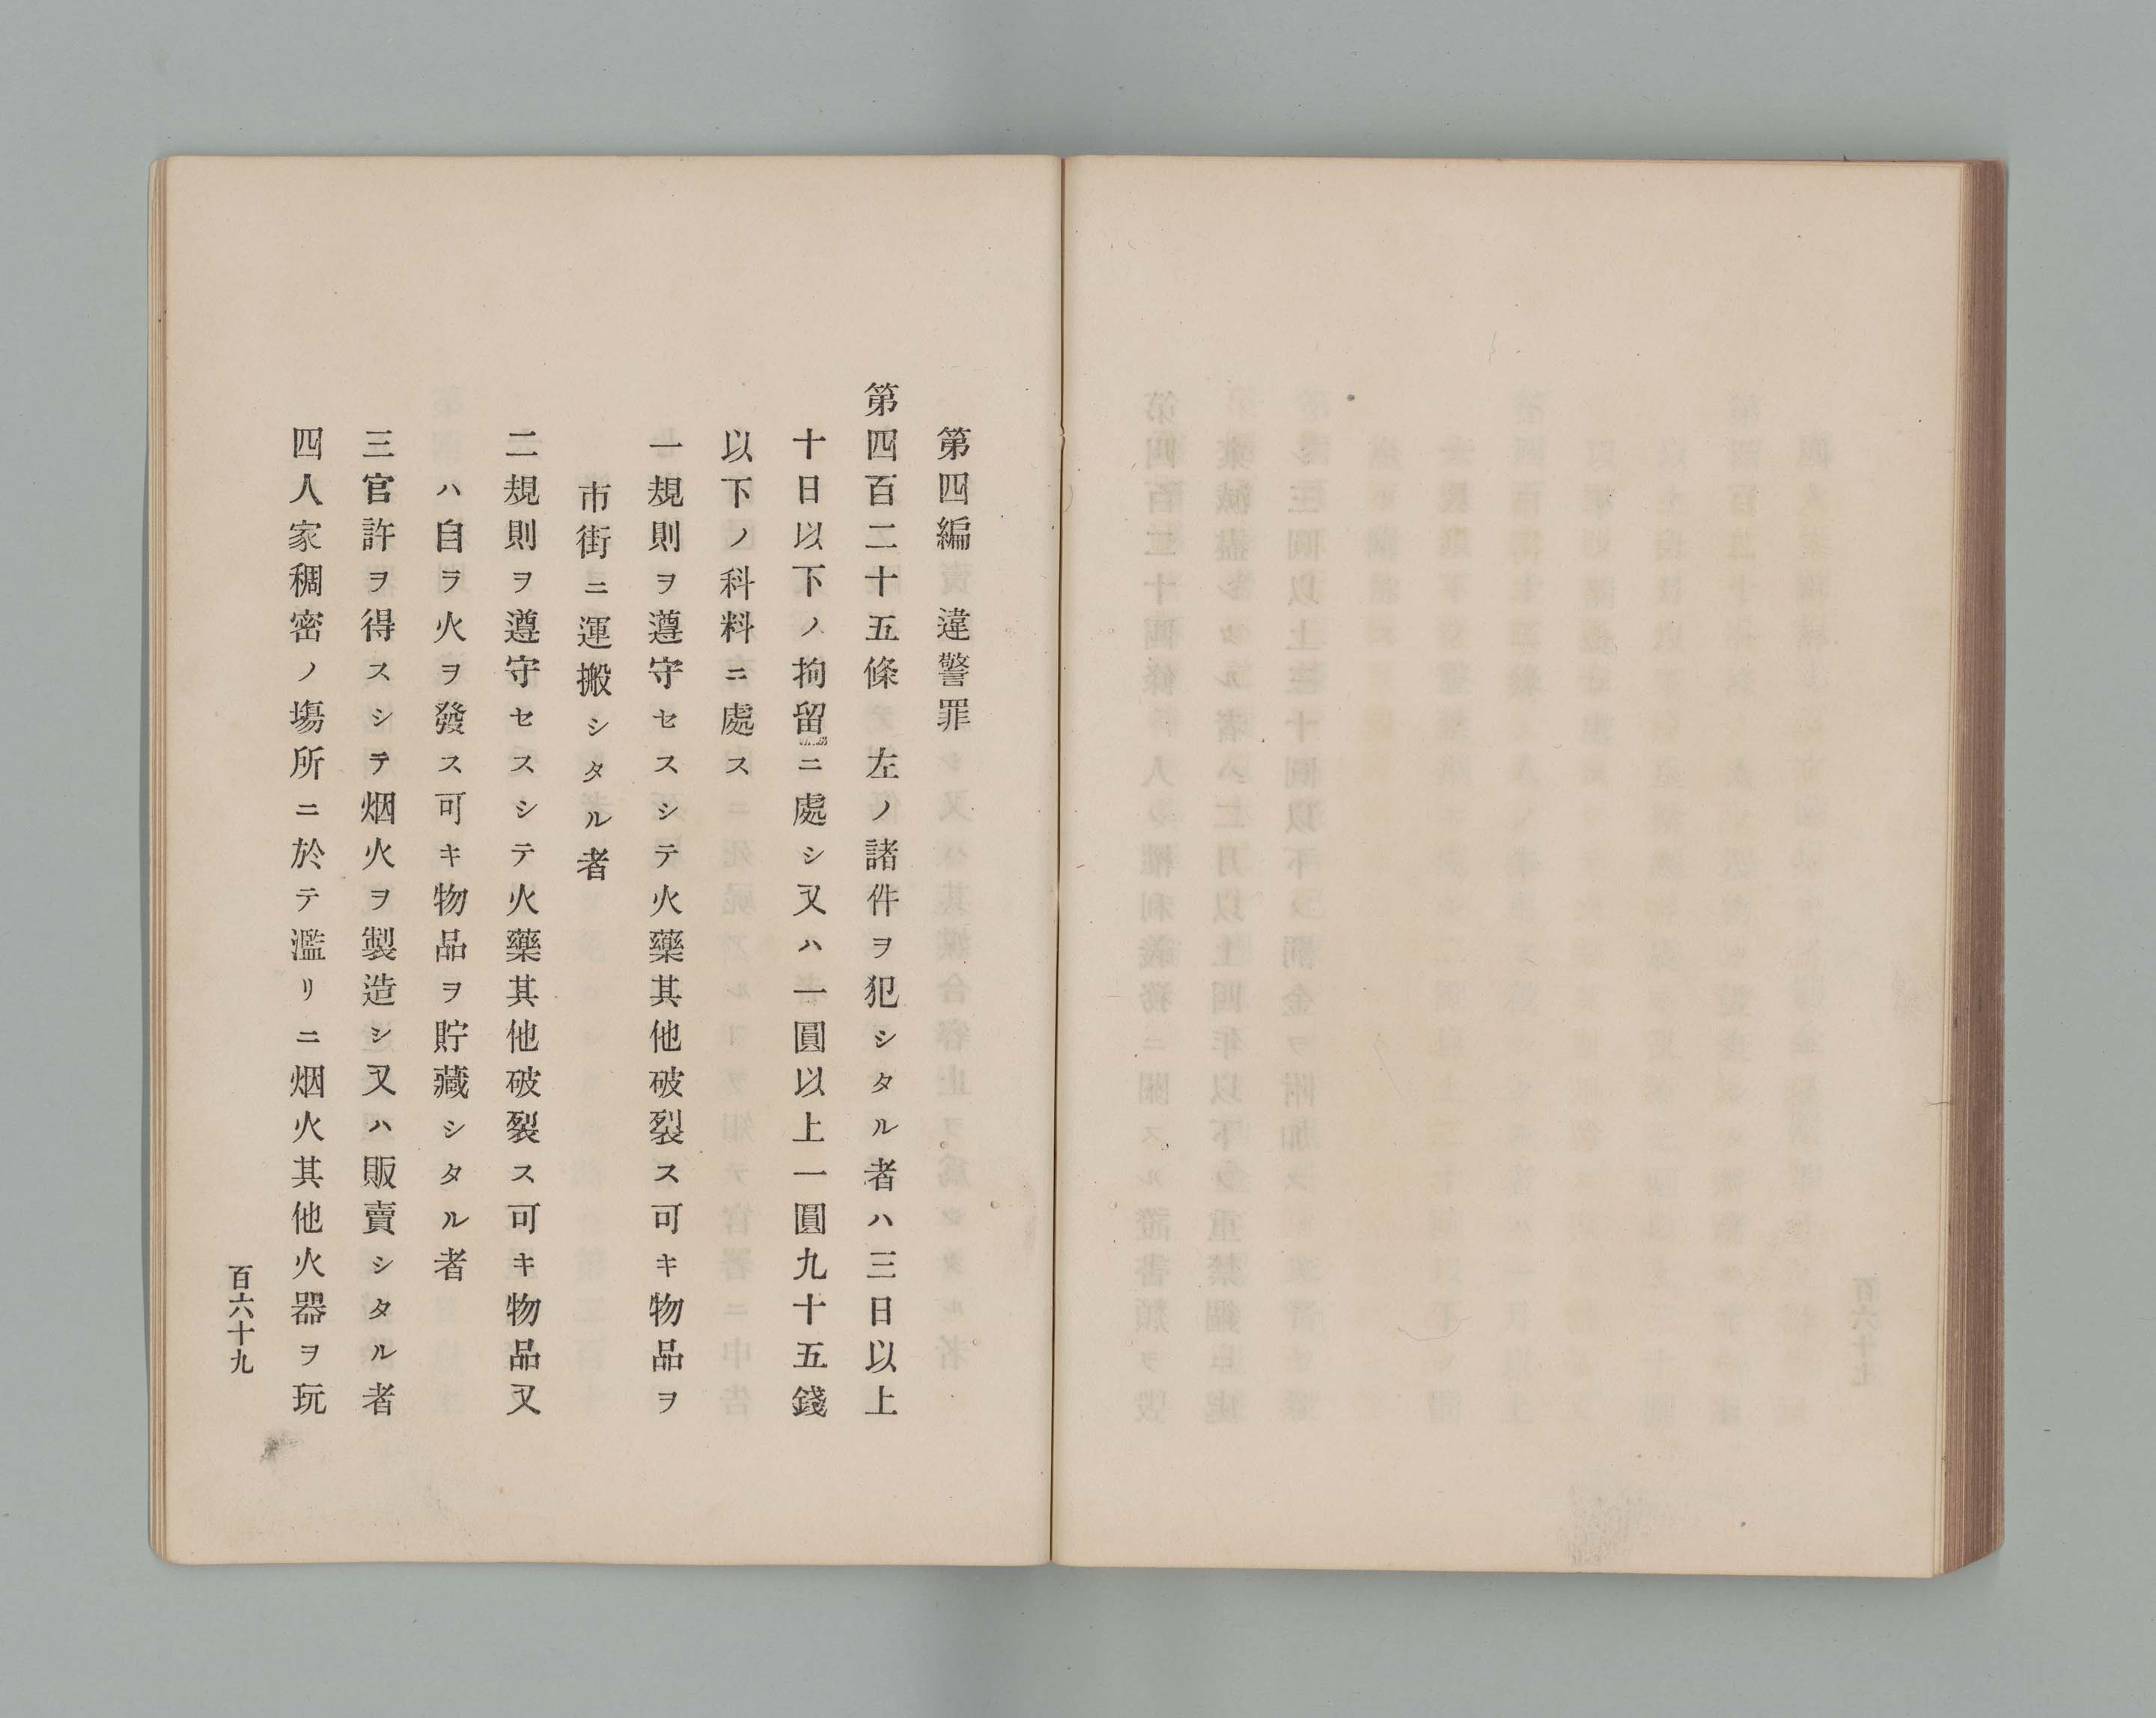 第四編　違警罪
第四百二十五條　左ノ諸件ヲ犯シタル者ハ三日以上
十日以下ノ拘留ニ處シ又ハ一圓以上一圓九十五錢
以下ノ科料ニ處ス
一規則ヲ遵守セスシテ火藥其他破裂ス可キ物品ヲ
市街ニ運搬シタル者
二規則ヲ遵守セスシテ火藥其他破裂ス可キ物品又
ハ自ヲ火ヲ發ス可キ物品ヲ貯藏シタル者
三官許ヲ得スシテ烟火ヲ製造シ又ハ販賣シタル者
四人家稠密ノ塲所ニ於テ濫リニ烟火其他火器ヲ玩
百六十九